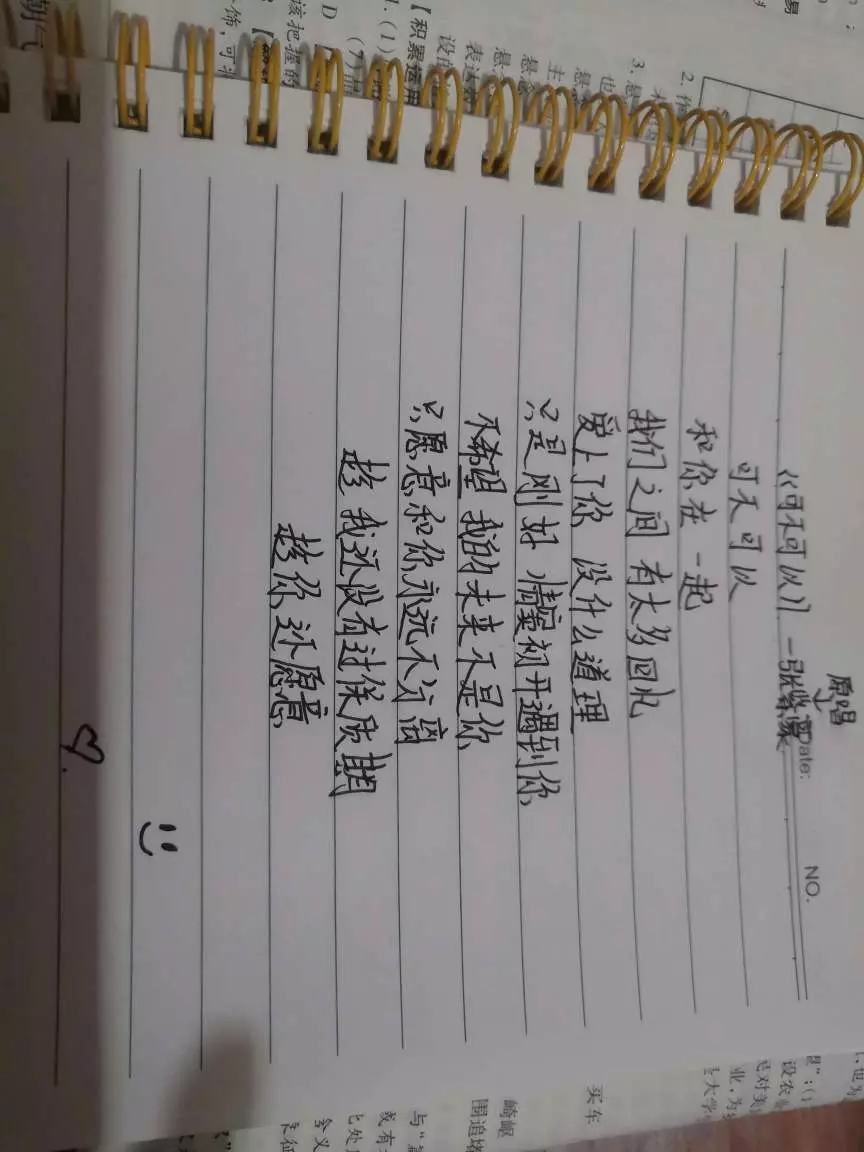 原唱
Date:
NO.
《可不可以》 —张紫豪
可不可以
和你在一起
我们之间 有太多回忆
爱上了你 没什么道理
只是刚好 情窦初开遇到你
不希望 我的未来不是你
只愿意和你永远不分离
趁 我还没有过保质期
趁你还愿意
【积累运用
该把握的
买车
崎岖
围追堵